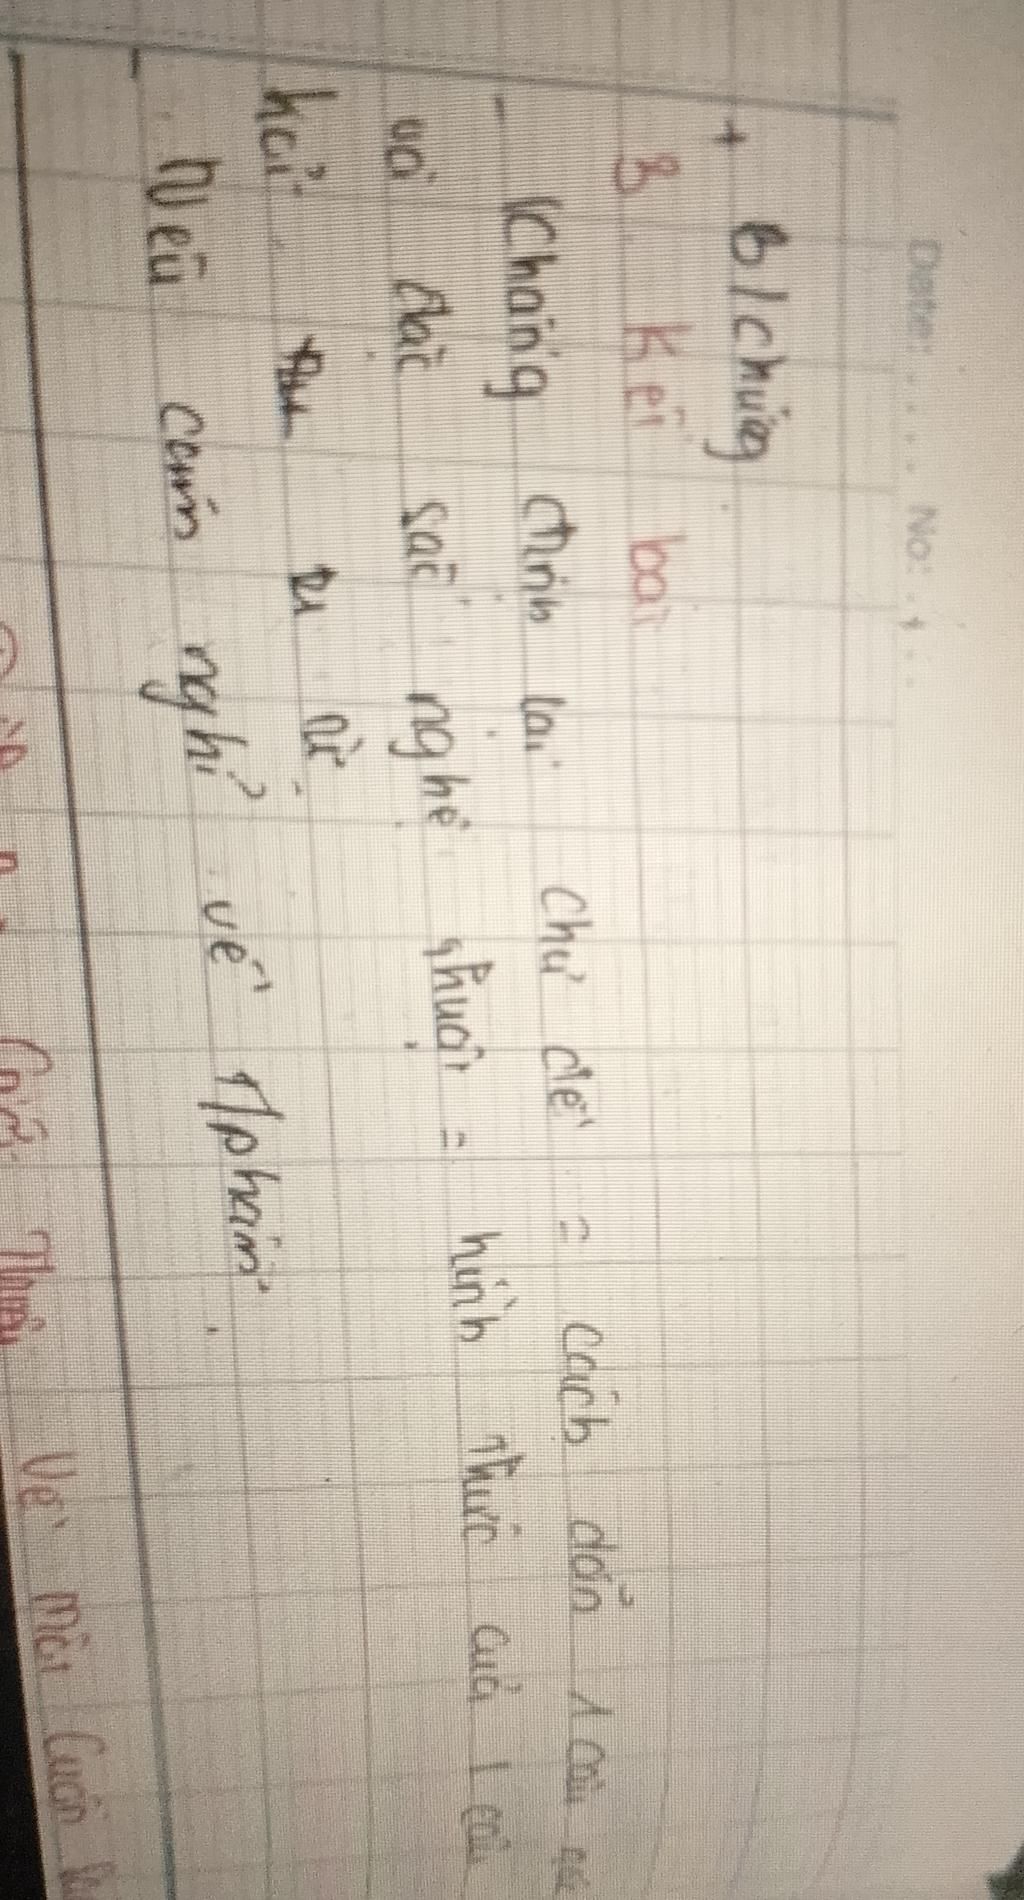 Date: . . . . No: . . .
+ B/chứng
3. Kết bài
- Khẳng định lại chủ đề = cách dẫn 1 câu
và đặc sắc nghệ thuật = hình thức của 1 câu
hỏi tu từ
- Nêu cảm nghĩ về T/phẩm.
Về một cuốn